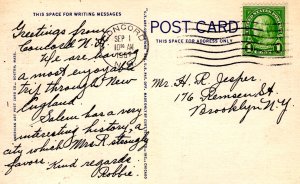 THIS SPACE FOR WRITING MESSAGES
Greetings from
N.H.
We are having
a most enjoyable
trip through New
England.
Salem has a very
interesting history, a
city which Mrs. R. strongly
favors.
Kind regards
Robbie.
POST CARD
THIS SPACE FOR ADDRESS ONLY
CONCORD
SEP 1
10 AM
1
Mr. H. R. Jesper.
176 Remsen St.
Brooklyn N.Y.